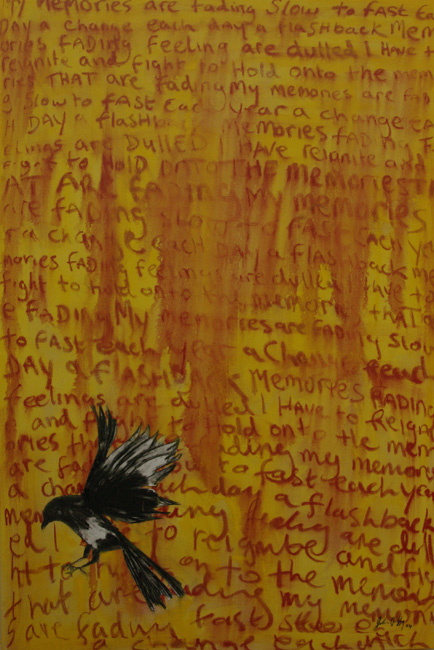 My MEMORIES are fading Slow to FAST Ea
DAY a change each day a flashback Mem
ories FADING Feeling are dulled I HAVE t
reignite and fight to Hold onto the mem
ries THAT are fading My memories are FAD
g Slow to FAST Each year a change EA
H DAY a flashb Memories FADING F
elings are DULLED I HAVE reignite and
Fight to HOLD ONTO THE memories T
AT ARE FADING My memories
are FADING SLOW to FAST EACH ye
r a change eacH DAY a flashback me
mories FADING feelings are dulled I have to
fight to hold onto the memories THAT a
e FADING My memories are FADING Slow
to FAST each year a Change
DAY a FLASHBACK MEMORIES FADING
feelings are dulled I HAVE to
and fight to Hold onto the mem
ories tha fading my memor
are fa to fast each yea
a cha ch day a flashback
mem are dull
ed to and fi
ht to on to the memor
that are fading my memor
s are fading fast slow
a change each